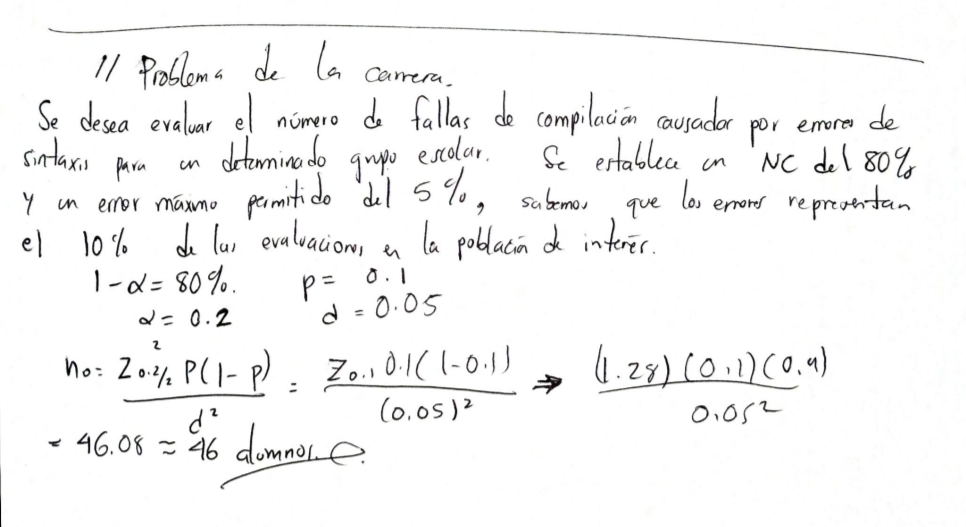 // Problema de la carrera.
Se desea evaluar el número de fallas de compilación causador por errores de
sintaxis para un determinado grupo escolar. Se establece un NC del 80%
y un error máximo permitido del 5%, sabemos que los errores representan
el 10% de las evaluaciones en la población de interés.
1-α = 80%. p = 0.1
α = 0.2 d = 0.05
n₀ = Z²0.2/2 P(1-p) / d² = Z0.1 0.1(1-0.1) / (0.05)² ⇒ (1.28)(0.1)(0.9) / 0.05²
= 46.08 ≈ 46 alumnos.